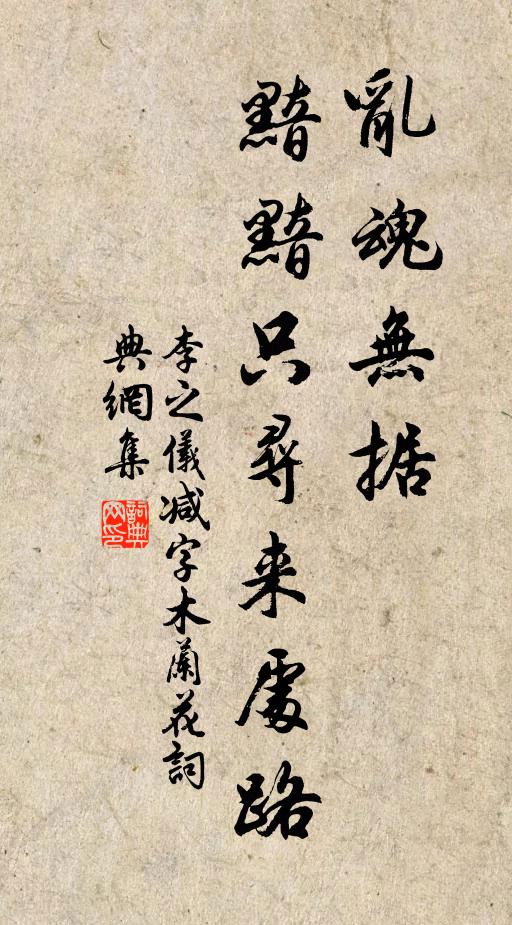 亂魂無据
黯黯只尋来處路
李之儀减字木蘭花詞
典網集
詞典网印